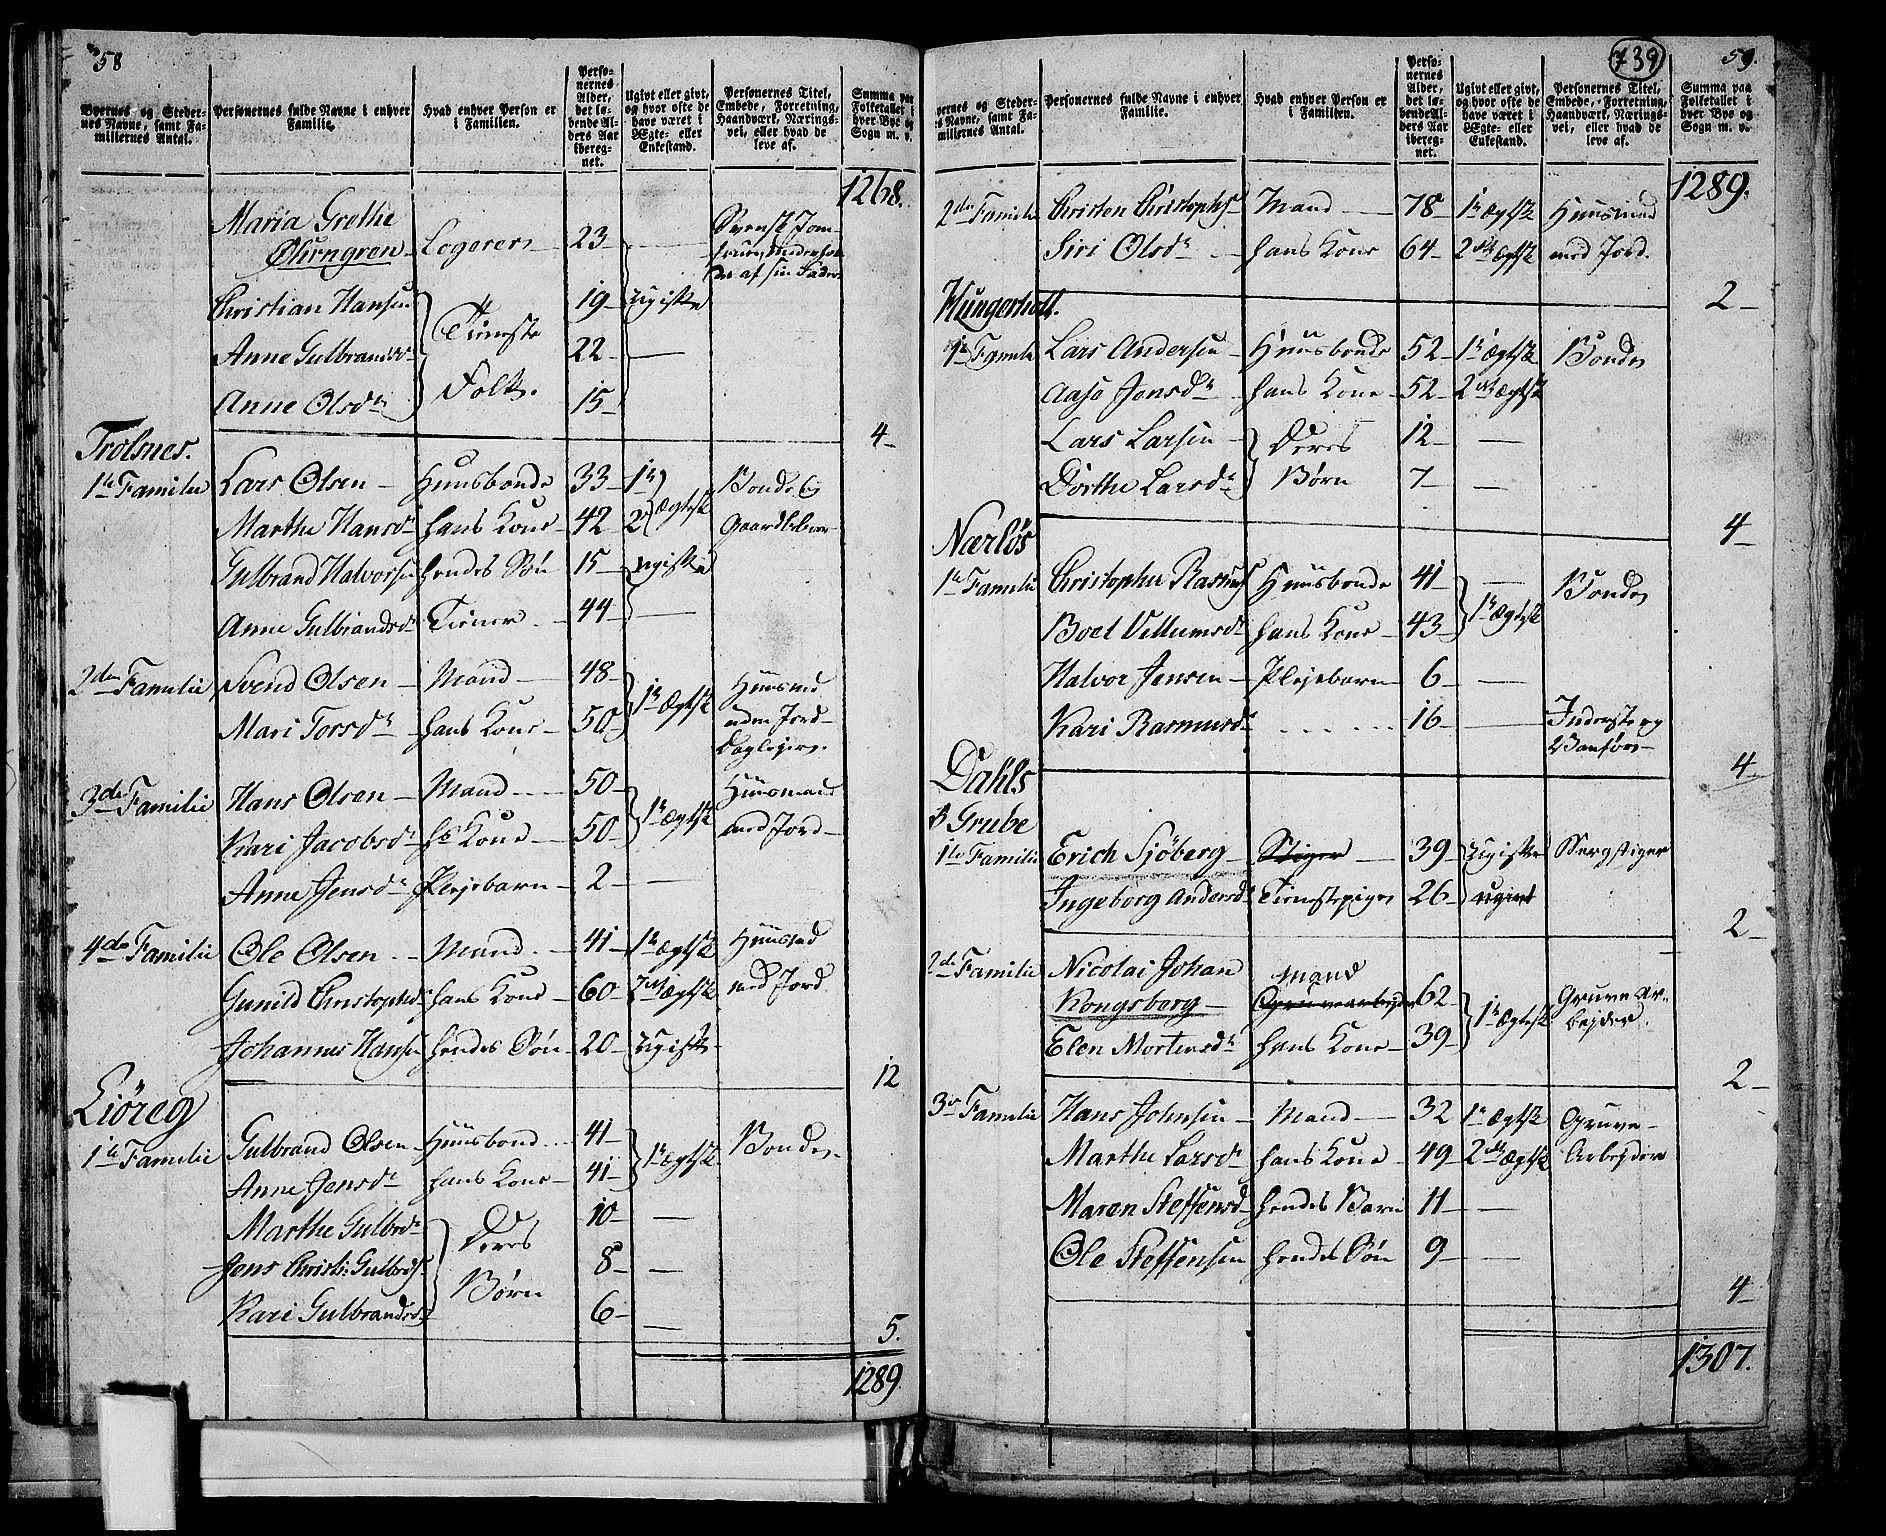 58
Byernes og Steder-
nes Navne, samt Fa-
miliernes Antal.
Personernes fulde Navne i enhver
Familie.
Hvad enhver Person er
i Familien.
Perso-
nernes
Alder,
det lø-
bende Al-
ders Aar
iberég-
net.
Ugivt eller givt,
og hvor ofte de
have været i
Ægte- eller
Enkestand.
Personernes Titel,
Embede, Forretning,
Haandværk, Nærings-
vei, eller hvad de
leve af.
Summa paa
Folketallet i
hver Bye og
Sogn m. v.
1268.
Maria Grethe
Øhrngren Logerer 23 —
Christian Hansen Tieneste 19 Ugifte
Anne Gulbrandsdr 22 —
Anne Olsdr Folk. 15
4
Trolsnes.
1te Familie Lars Olsen Huusbonde 33 1te Bonde og
Marthe Hansdr hans Kone 42 2 Ægtesk Gaardbeboer
Gulbrand Halvorsen hendes Søn 15 ugifte
Anne Gulbrandsdr Tiener 44 —
2den Familie Svend Olsen Mand 48 1te Ægtsk Huusmd
Mari Torsdr hans Kone 50 uden Jord
Daglejer.
3de Familie Hans Olsen Mand 50 1te Ægtsk Huusmand
Kari Jacobsdr hs Kone 50 med Jord
Anne Jensdr Plejebarn 2 —
4de Familie Ole Olsen Mand 41 1te Ægtsk Huusmd
Gunild Christophsdr hans Kone 60 2det Ægtsk med Jord
Johannes Hansen hendes Søn 20 Ugift
12
Liöreg
1te Familie Gulbrand Olsen Huusbond 41 1te Ægtsk Bonde
Anne Jensdr hans Kone 41
Marthe Gulbrdr Deres 10 —
Jens Christi: Gulbrds 8 —
Kari Gulbrandsdr Børn 6 —
5.
1289
739
59.
rnes og Steder-
s Navne, samt Fa-
miliernes Antal.
Personernes fulde Navne i enhver
Familie.
Hvad enhver Person er
i Familien.
Perso-
nernes
Alder,
det lø-
bende Al-
ders Aar
iberég-
net.
Ugivt eller givt,
og hvor ofte de
have været i
Ægte- eller
Enkestand.
Personernes Titel,
Embede, Forretning,
Haandværk, Nærings-
vei, eller hvad de
leve af.
Summa paa
Folketallet i
hver Bye og
Sogn m. v.
1289.
2den Familie Christen Christophs Mand 78 1te Ægtsk Huusmd
Siri Olsdr hans Kone 64 2det Ægtsk med Jord.
2
Hungerholt.
1te Familie Lars Andersen Huusbonde 52 1te Ægtsk Bonde
Aase Jensdr hans Kone 52 2det Ægtsk
Lars Larsen Deres 12 —
Dorthe Larsdr Børn 7 —
4
Nærløs
1te Familie Christopher Rasmus Huusbonde 41 — Bonde
Boel Villumsdr hans Kone 43 1te Ægtsk
Halvor Jensen Plejebarn 6 —
Kari Rasmusdr . . . . . 16 — Inderste og
Vanføre
4
Dahls
Grube
1te Familie Erich Sjöberg Stiger 39 Ugifte Bergstiger
Ingeborg Andersdr Tienestepige 26 ugivt
2
2de Familie Nicolai Johan Mand
Kongsborg Gruvearbejder 62 1te Ægtsk Gruve Ar-
bejder.
Elen Mortensdr hans Kone 39
2
3de Familie Hans Johnsen Mand 32 1te Ægtsk Gruve-
Marthe Larsdr hans Kone 49 2det Ægtsk Arbejder
Maren Steffensd hendes Barn 11 —
Ole Steffensen hendes Søn 9 —
4
1307.